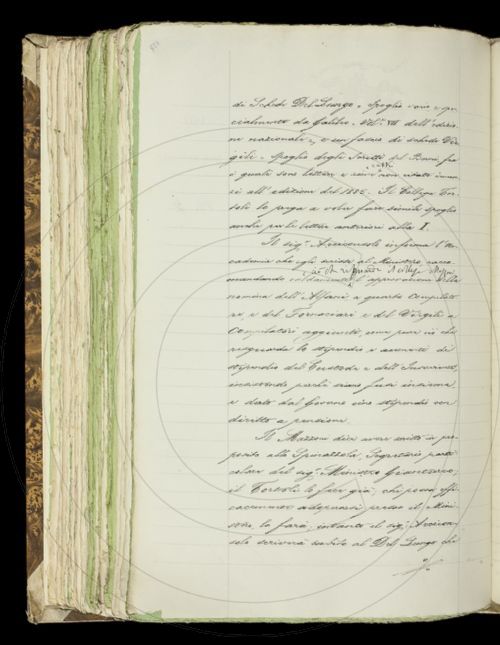 di schede Del Lungo = Spoglio vario e spe-
cialmente da Galileo - Vol. VII dell'edizio-
ne nazionale =, e un fascio di schede Vir-
gili = Spoglio degli Scritti del Berni fra
i quali sono lettere e rime non citate innan-
zi all'edizione del 1885. Il Collega Tor-
toli lo prega a voler fare simile spoglio
anche per le lettere anteriori alla I.
Il sig. Arciconsolo informa l'Ac-
cademia che egli scrisse al Ministro racco-
mandando l'approvazione della
nomina dell'Alfani a quarto Compilato-
re, e del Fornaciari e del Virgili a
Compilatori aggiunti, come pure ciò che
riguarda lo stipendio e aumento di
stipendio del Custode e dell'Inserviente,
insistendo perché siano fusi insieme,
e dato dal Governo uno stipendio con
diritto a pensione.
Il Mazzoni dice avere scritto in pro-
posito alla Spinazzola, Segretario parti-
colare del sig. Ministro Gianturco;
il Tortoli lo fece già; chi possa effi-
cacemente adoprarsi presso il Mini-
stro, lo farà; intanto il sig. Arcicon-
solo scriverà subito al Del Lungo che